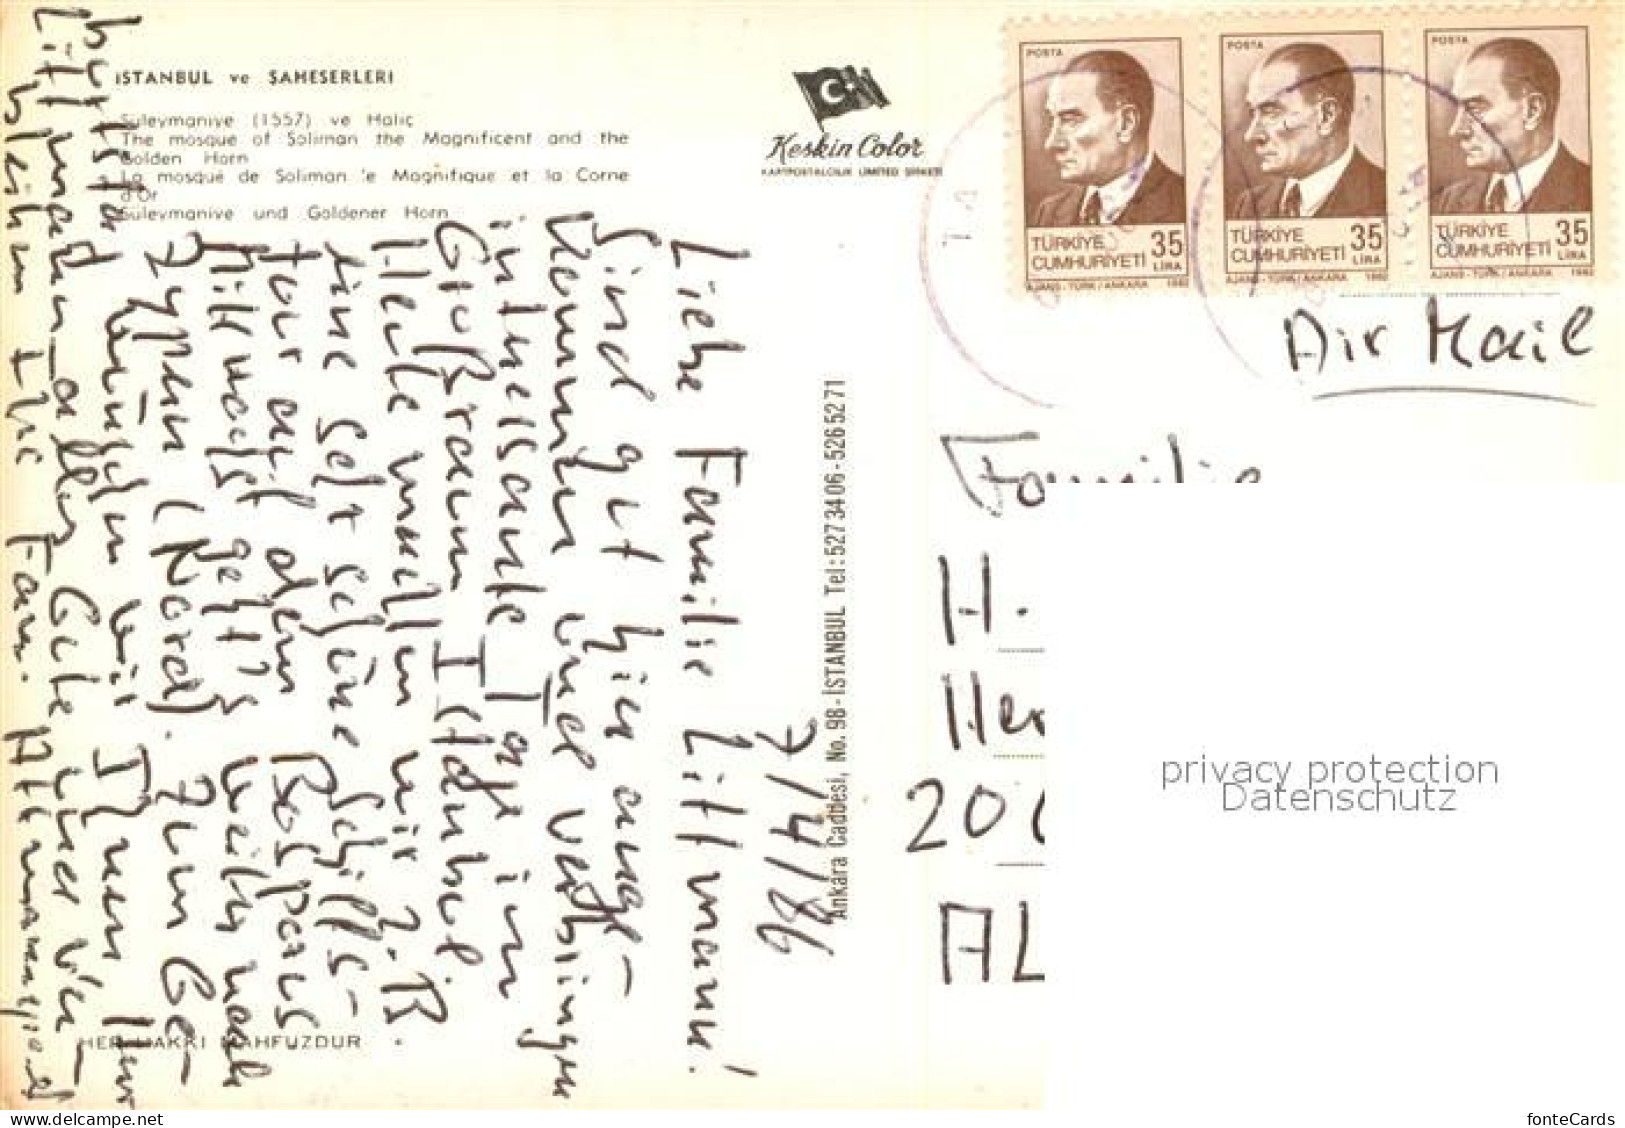 İSTANBUL ve ŞAHESERLERİ
Süleymaniye (1557) ve Haliç
The mosque of Soliman the Magnificent and the
Golden Horn
La mosque de Soliman le Magnifique et la Corne
d'Or
Süleymaniye und Goldener Horn
Keskin Color
KARTPOSTALCILIK LIMITED ŞİRKETİ
Ankara Caddesi, No. 98 - İSTANBUL Tel: 5273406 - 5265271
HER HAKKI MAHFUZDUR.
POSTA
TÜRKİYE
CUMHURİYETİ
35
LİRA
AJANS - TÜRK / ANKARA 1982
POSTA
TÜRKİYE
CUMHURİYETİ
35
LİRA
AJANS - TÜRK / ANKARA 1982
POSTA
TÜRKİYE
CUMHURİYETİ
35
LİRA
AJANS - TÜRK / ANKARA 1982
Air Mail
Familie
H.
Her
20
AL
7/4/86
Liebe Familie Littmann!
Sind gut hier ange-
kommen und verbringen
interessante Tage im
Großraum Istanbul.
Heute machen wir z.B.
eine sehr schöne Schiffs-
tour auf dem Bosporus
Mittwochs geht's weiter nach
Zypern (Nord). Zum Ge-
burtstag wünschen wir Ihnen Herr
Littmann alles Gute und
bleiben Ihre Fam.
privacy protection
Datenschutz
fonteCards